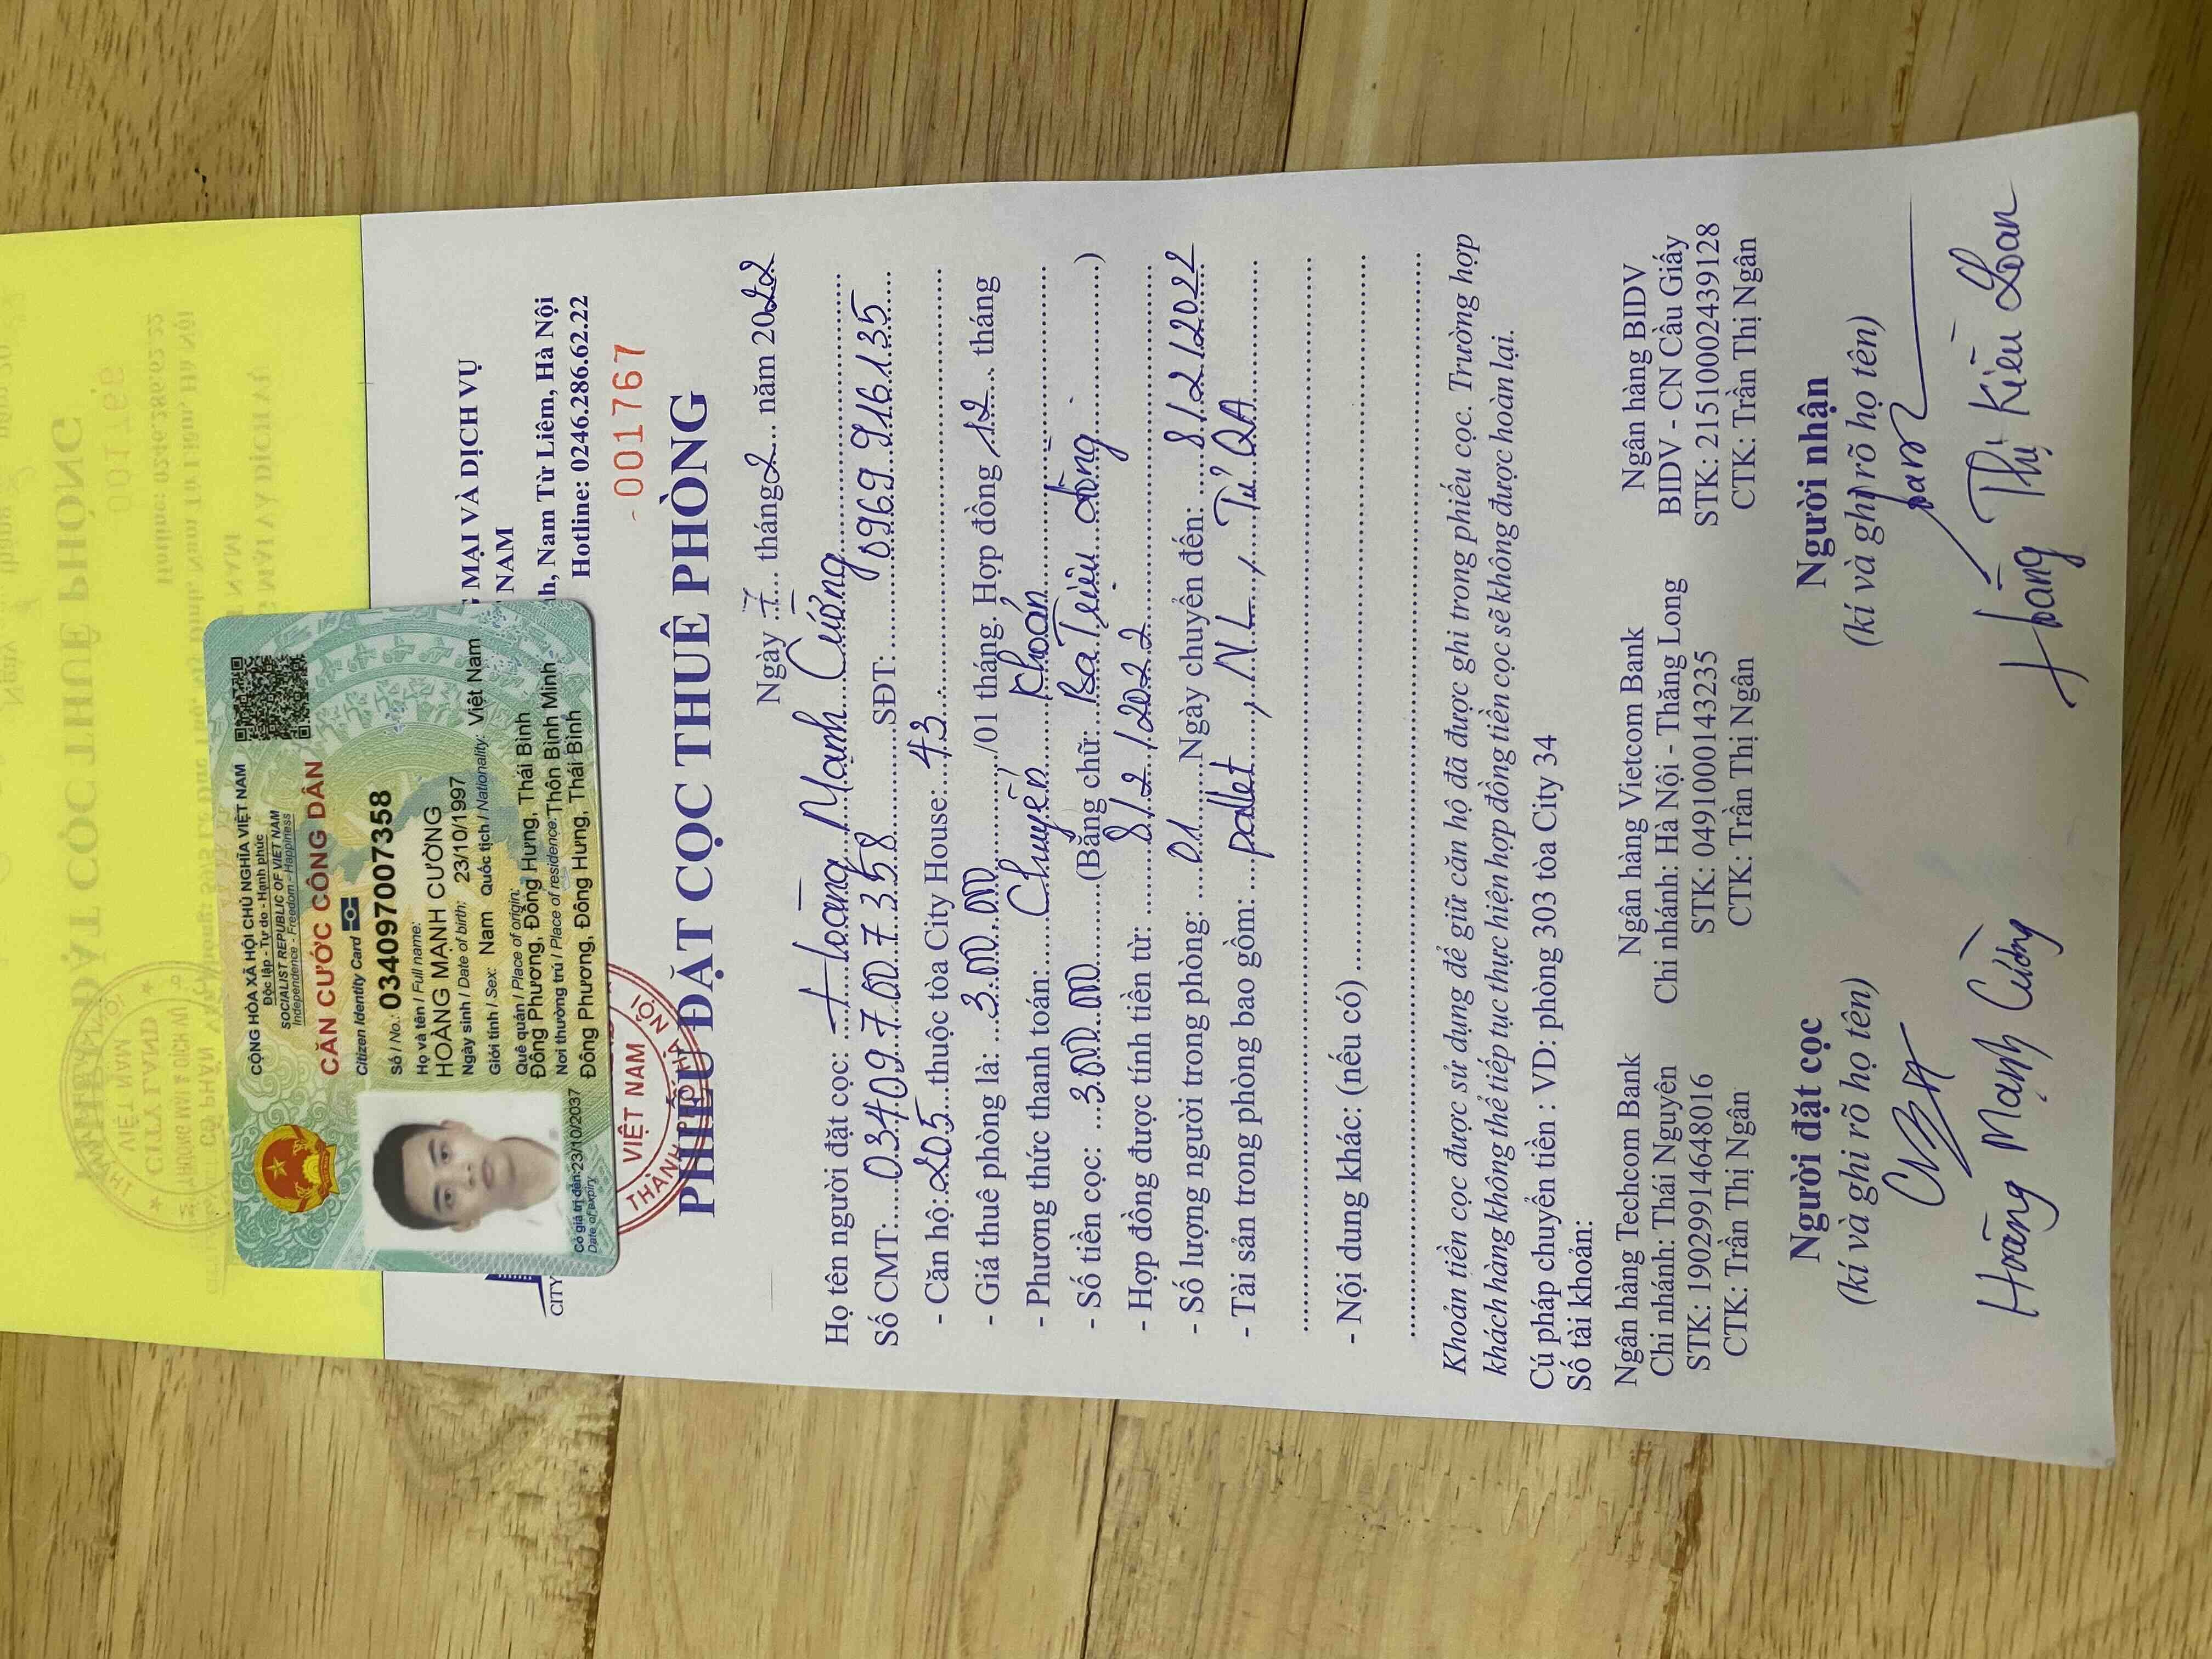 CỘNG HÒA XÃ HỘI CHỦ NGHĨA VIỆT NAM
Độc lập - Tự do - Hạnh phúc
SOCIALIST REPUBLIC OF VIET NAM
Independence - Freedom - Happiness
CĂN CƯỚC CÔNG DÂN
Citizen Identity Card
Số / No.: 034097007358
Họ và tên / Full name:
HOÀNG MẠNH CƯỜNG
Ngày sinh / Date of birth: 23/10/1997
Giới tính / Sex: Nam Quốc tịch / Nationality: Việt Nam
Quê quán / Place of origin:
Đông Phương, Đông Hưng, Thái Bình
Nơi thường trú / Place of residence: Thôn Bình Minh
Đông Phương, Đông Hưng, Thái Bình
Có giá trị đến: 23/10/2037
Date of expiry
MẠI VÀ DỊCH VỤ
NAM
h, Nam Từ Liêm, Hà Nội
Hotline: 0246.286.62.22
CITY
001767
VIỆT NAM
PHIẾU ĐẶT CỌC THUÊ PHÒNG
Ngày 7 tháng 2 năm 2022
Họ tên người đặt cọc: Hoàng Mạnh Cường
Số CMT: 034097007358 SĐT: 0969916135
- Căn hộ: 205 thuộc tòa City House: 43
- Giá thuê phòng là: 3.000.000 /01 tháng. Hợp đồng 12 tháng
- Phương thức thanh toán: Chuyển khoản
- Số tiền cọc: 3.000.000 (Bằng chữ: Ba Triệu đồng)
- Hợp đồng được tính tiền từ: 8/2/2022
- Số lượng người trong phòng: 01 Ngày chuyển đến: 8/2/2022
- Tài sản trong phòng bao gồm: pallet, NL, Tủ QA
- Nội dung khác: (nếu có)
Khoản tiền cọc được sử dụng để giữ căn hộ đã được ghi trong phiếu cọc. Trường hợp
khách hàng không thể tiếp tục thực hiện hợp đồng tiền cọc sẽ không được hoàn lại.
Cú pháp chuyển tiền : VD: phòng 303 tòa City 34
Số tài khoản:
Ngân hàng Techcom Bank
Chi nhánh: Thái Nguyên
STK: 19029914648016
CTK: Trần Thị Ngân
Ngân hàng Vietcom Bank
Chi nhánh: Hà Nội - Thăng Long
STK: 0491000143235
CTK: Trần Thị Ngân
Ngân hàng BIDV
BIDV - CN Cầu Giấy
STK: 21510002439128
CTK: Trần Thị Ngân
Người đặt cọc
(kí và ghi rõ họ tên)
Hoàng Mạnh Cường
Người nhận
(kí và ghi rõ họ tên)
Hoàng Thị Kiều Loan